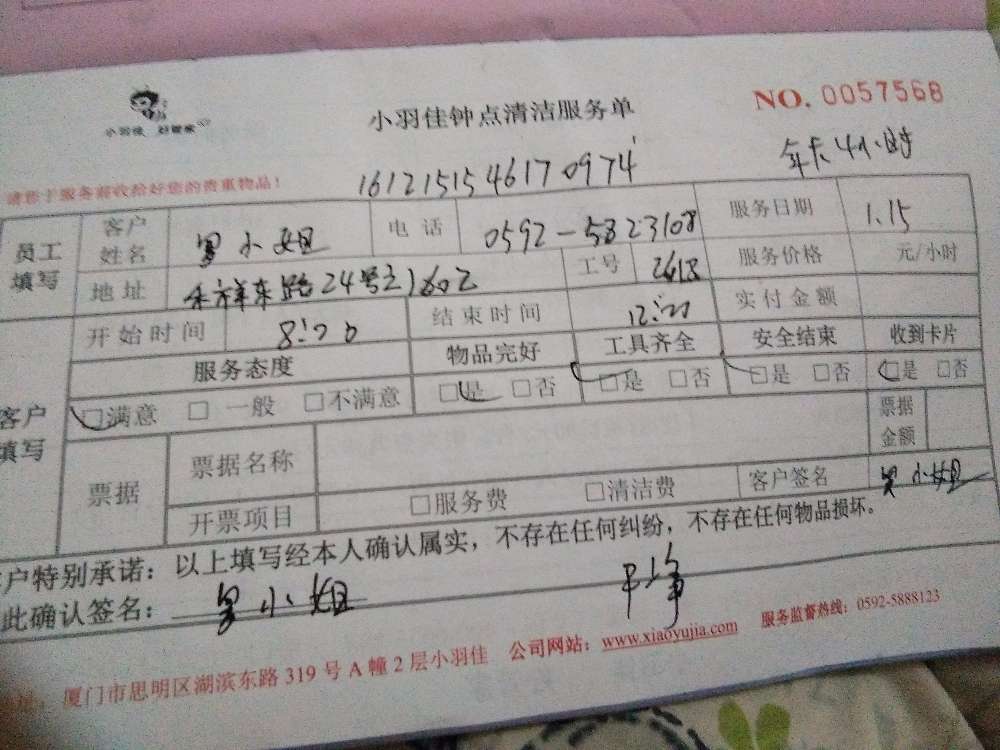 小羽佳 好管家
小羽佳钟点清洁服务单
NO. 0057568
请您于服务前收拾好您的贵重物品！
1612151546170974
年卡4小时
员工填写
客户姓名 小姐 电话 0592-5823108 服务日期 1.15
地址 禾祥东路24号之1602 工号 2618 服务价格 元/小时
开始时间 8:00 结束时间 12:00 实付金额
客户填写
服务态度 物品完好 工具齐全 安全结束 收到卡片
□满意 □一般 □不满意 □是 □否 □是 □否 □是 □否 □是 □否
票据 票据名称 票据金额
开票项目 □服务费 □清洁费 客户签名 小姐
客户特别承诺：以上填写经本人确认属实，不存在任何纠纷，不存在任何物品损坏。
此确认签名： 小姐 干净
厦门市思明区湖滨东路319号A幢2层小羽佳 公司网站：www.xiaoyujia.com 服务监督热线：0592-5888123